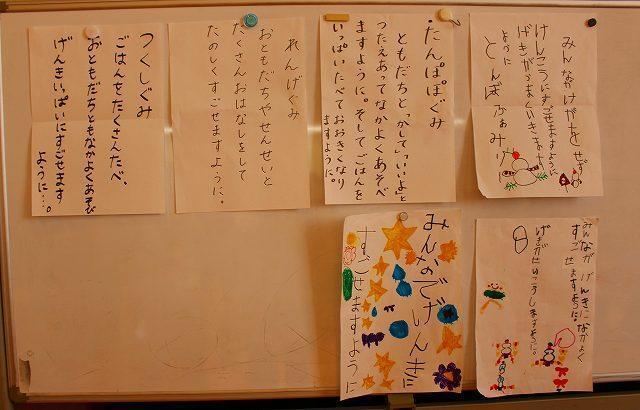 つくしぐみ
ごはんをたくさんたべ、
おともだちともなかよくあそび
げんきいっぱいにすごせます
ように…。
れんげぐみ
おともだちやせんせいと
たくさんおはなしをして
たのしくすごせますように。
たんぽぽぐみ
ともだちと「かして」「いいよ」と
つたえあってなかよくあそべ
ますように。そしてごはんを
いっぱいたべておおきくなり
ますように。
みんなけがをせず
けんこうにすごせますように
げきがうまくいきます
ように
とんぼふぁみりー
みんなでげんきに
すごせますように
みんながげんきになかよく
すごせますように。
げきがせいこうしますように。